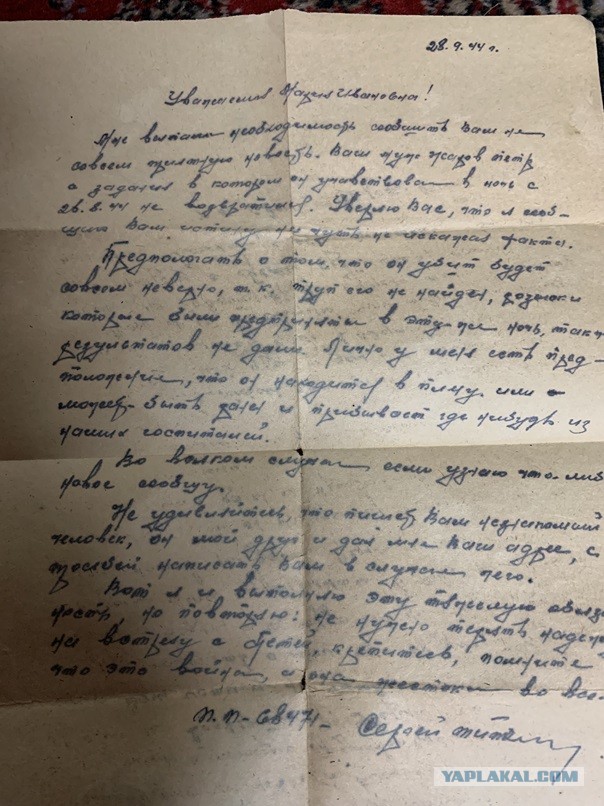 28.9.44 г.
Уважаемая Мария Ивановна!
Мне выпала необходимость сообщить Вам не
совсем приятную новость. Ваш муж Жаров Петр
с задания в котором он учавствовал в ночь с
26.8.44 не возвратился. Уверяю Вас, что я сооб-
щаю Вам истину ни чуть не искажая факты.
Предпологать о том, что он убит будет
совсем неверно, т.к. труп его не найден, розыски
которые были предприняты в эту-же ночь, так-
результатов не дали. Лично у меня есть пред-
положение, что он находится в плену или
может-быть ранен и пребывает где нибудь из
наших госпиталей.
Во всяком случаи если узнаю что-либ
новое сообщу.
Не удивляйтесь, что пишет Вам незнакомый
человек, он мой друг и дал мне Ваш адрес, с
просьбой написать Вам в случаи чего.
Вот я и выполняю эту тяжелую обяза
ность но повторяю: не нужно терять надежд
на встречу с Петей, крепитесь, помните
что это война, а она жестока во все-
П.П-68471- Сергей
YAPLAKAL.COM